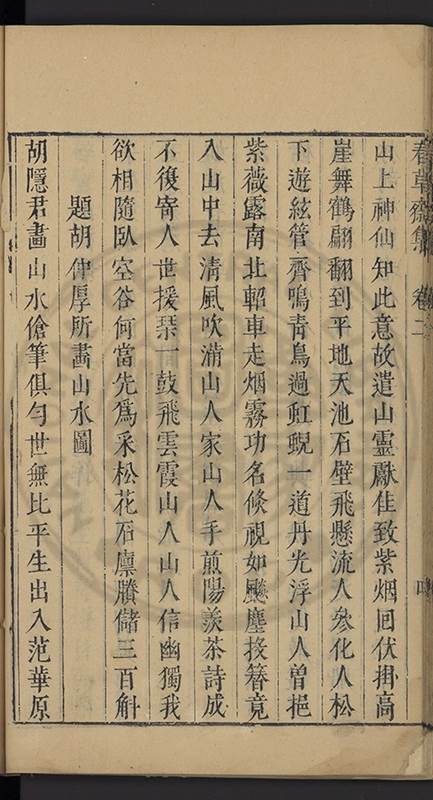 春草齋集 卷二 四
山上神仙知此意故遣山靈獻佳致紫烟回伏掛高
崖舞鶴翩翻到平地天池石壁飛懸流人參化人松
下遊絃管齊鳴青鳥過虹蜺一道丹光浮山人曾挹
紫薇露南北軺車走烟霧功名倐視如飈塵投簪竟
入山中去清風吹滿山人家山人手煎陽羨茶詩成
不復寄人世援琹一鼓飛雲霞山人山人信幽獨我
欲相隨臥空谷何當先爲采松花石廪賸儲三百斛
題胡仲厚所畵山水圖
胡隱君畵山水傖筆俱勻世無比平生出入范華原